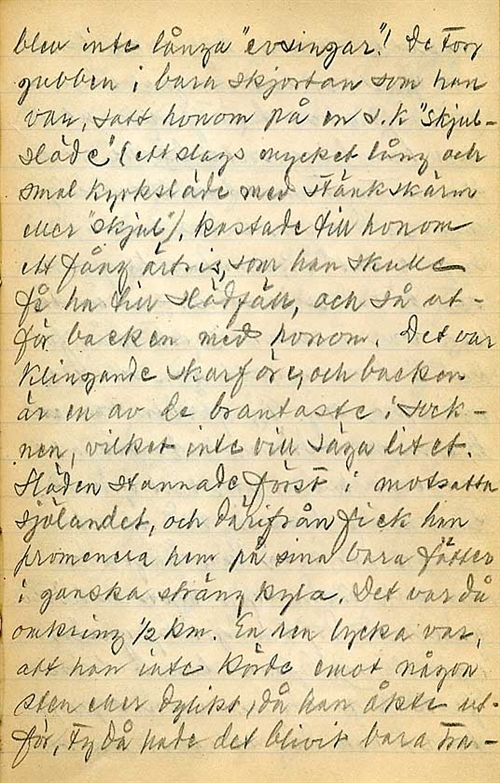 blev inte långa "evsingar"! De tog
gubben i bara skjortan som han
var, satt honom på en s.k "skjul-
släde" (ett slags mycket lång och
smal kyrksläde med stänkskärm
eller "skjul"), kastade till honom
ett fång ärtris, som han skulle
få ha till slädfäll, och så ut-
för backen med honom. Det var
klingande skarföre, och backen
är en av de brantaste i sock-
nen, vilket inte vill säga litet.
Släden stannade först i motsatta
sjölandet, och därifrån fick han
promenera hem på sina bara fötter
i ganska sträng kyla. Det var då
omkring 1/2 km. En ren lycka var,
att han inte körde emot någon
sten eller dylikt, då han åkte ut-
för, ty då hade det blivit bara tra-